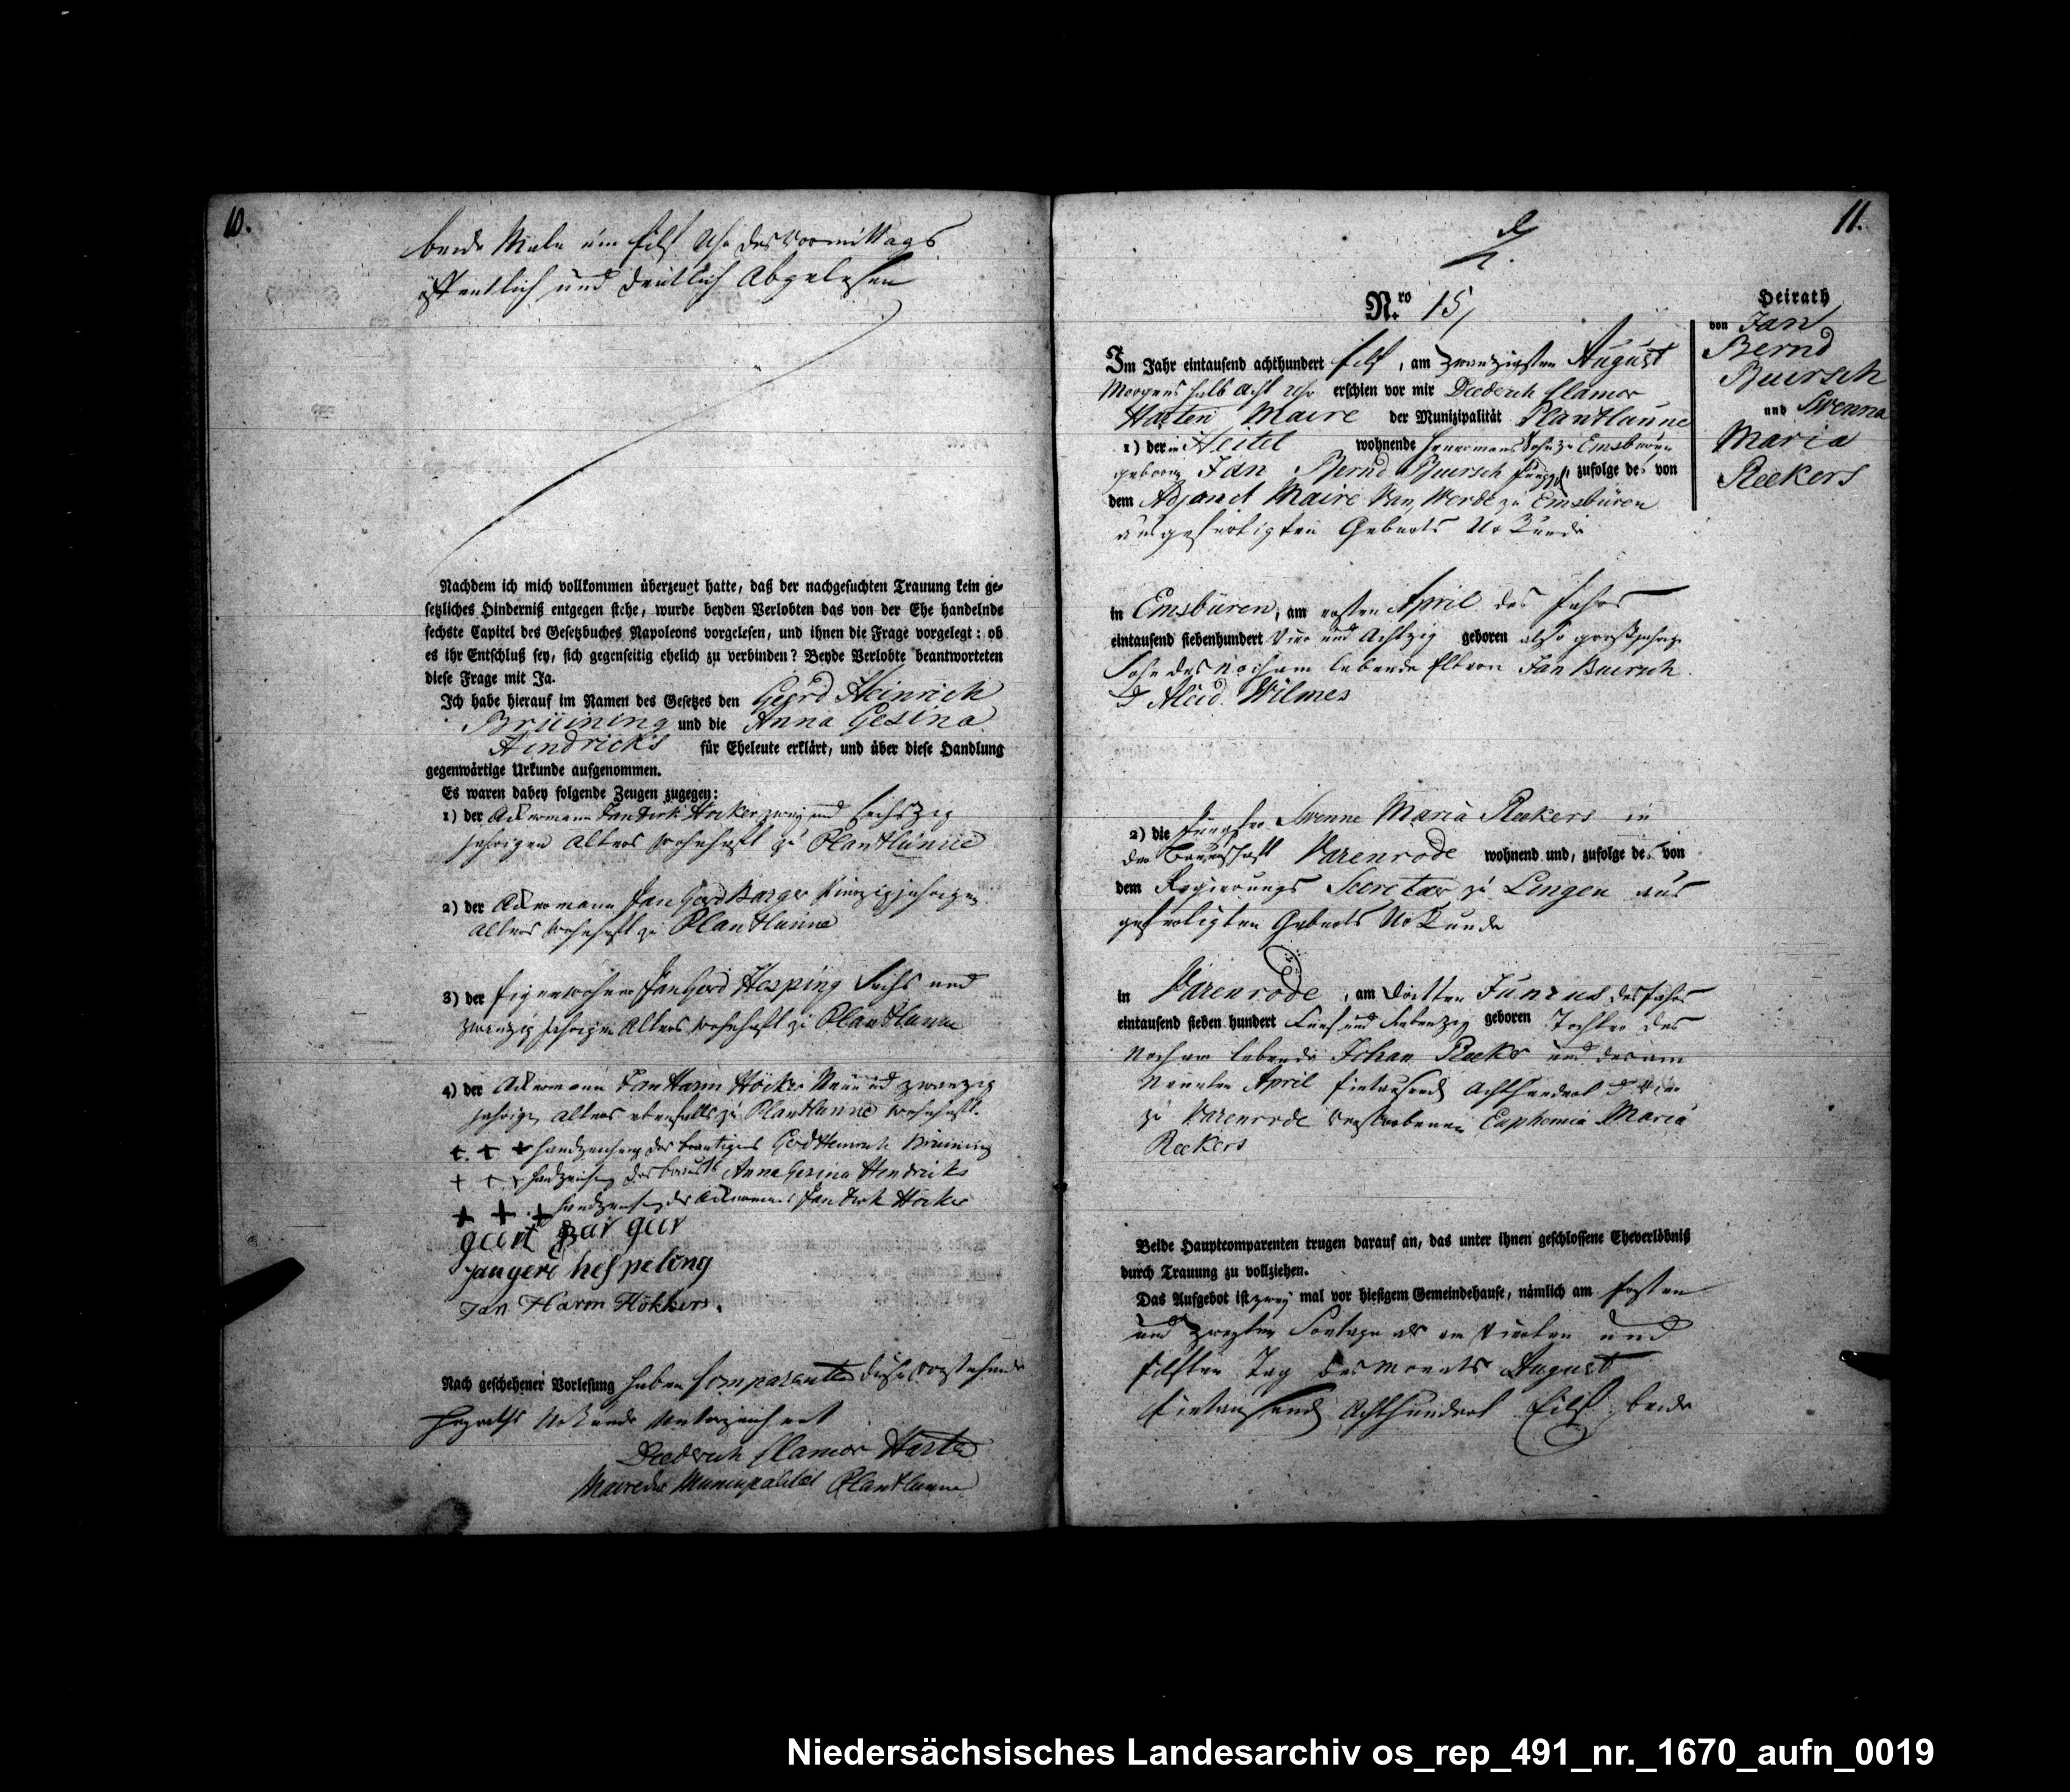 10.
beide Male um Eilf Uhr des Vormittags
öffentlich und deutlich Abgelesen
Nachdem ich mich vollkommen überzeugt hatte, daß der nachgesuchten Trauung kein ge-
setzliches Hinderniß entgegen stehe, wurde beyden Verlobten das von der Ehe handelnde
sechste Capitel des Gesetzbuches Napoleons vorgelesen, und ihnen die Frage vorgelegt: ob
es ihr Entschluß sey, sich gegenseitig ehelich zu verbinden? Beyde Verlobte beantworteten
diese Frage mit Ja.
Ich habe hierauf im Namen des Gesetzes den Gerd Heinrich
Brüning und die Anna Gesina
Hendricks für Eheleute erklärt, und über diese Handlung
gegenwärtige Urkunde aufgenommen.
Es waren dabey folgende Zeugen zugegen:
1) der Ackermann Jan Dirk Höcker zwey und sechszig
jahrigen Alters wohnhaft zu Plantlünne
2) der Ackermann Jan Gerd Barger vierzigjahrigen
Alters wohnhaft zu Plantlünne
3) der Eigenwohner Jan Gerd Hesping Sechs und
zwanzig jahrigen Alters wohnhaft zu Plantlünne
4) der Ackermann Jan Harm Höcker Neun und zwanzig
jahrigen Alters ebenfalls zu Plantlünne wohnhaft.
+ + + Handzeichen des Bräutigams Gerd Heinrich Brüning
+ + + Handzeichen der Braut Anna Gesina Hendricks
+ + + Handzeichen des Ackermans Jan Dirk Höcker
geert Bar geer
jan gerd hespeling
Jan Harm Hökkers.
Nach geschehener Vorlesung haben Comparenten diese vorstehende
Heyraths Urkunde Unterzeichnet
Diederich Clamor Harten
Maire der Municipalität Plantlünne
11.
Nro 15
Heirath
von Jan
Bernd
Buersch
und Swenna
Maria
Reekers
Im Jahr eintausend achthundert Eilf, am zwanzigsten August
Morgens halb acht Uhr erschien vor mir Diederich Clamor
Harten Maire der Munizipalität Plantlünne
1) der in Heitel wohnende Heuermans Sohn zu Emsbüren
geboren Jan Bernd Buersch zufolge des von
dem Adjonct Maire Van Werde zu Emsbüren
ausgefertigten Geburts Urkunde
in Emsbüren, am ersten April des Jahrs
eintausend siebenhundert Vier und Achtzig geboren also grosjahrige
Sohn des noch am lebende Eltern Jan Buersch
& Aleid Wilmes
2) die Jungfer Swenne Maria Reekers in
der Bauerschaft Varenrode wohnend und, zufolge des von
dem Regierungs Secretar zu Lingen aus
gefertigten Geburts Urkunde
in Varenrode, am dritten Junius des Jahrs
eintausend sieben hundert Fünf und siebenzig geboren Tochter des
noch am lebende Johan Reeker und der am
Neunten April Eintausend Achthundert &
zu Varenrode verstorbenen Euphemia Maria
Reekers
Beide Hauptcomparenten trugen darauf an, das unter ihnen geschlossene Eheverlöbniß
durch Trauung zu vollziehen.
Das Aufgebot ist zwey mal vor hiesigem Gemeindehause, nämlich am Ersten
und zweyten Sontage als am Vierten und
Eilften Tag des Monats August
Eintausend Achthundert Eilf, beide
Niedersächsisches Landesarchiv os_rep_491_nr._1670_aufn_0019